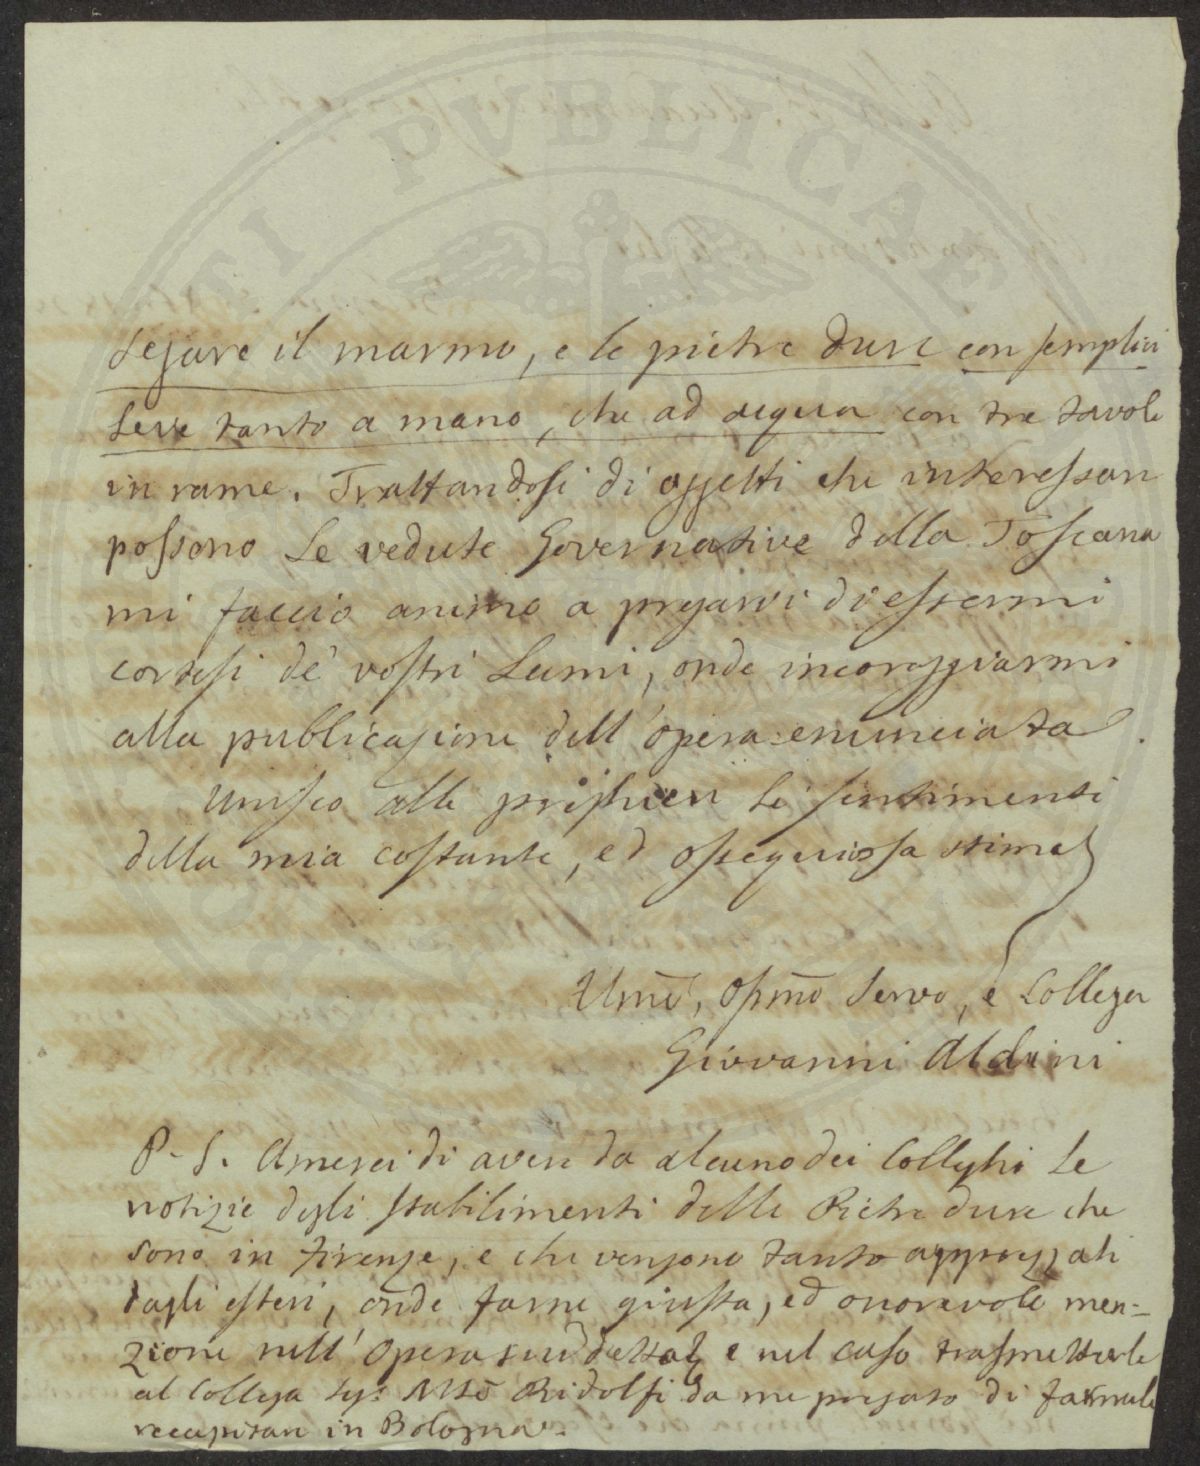 segare il marmo, e le pietre dure con semplici
leve tanto a mano, che ad acqua con tre tavole
in rame. Trattandosi di oggetti che interessar
possono le vedute Governative della Toscana
mi faccio animo a pregarvi di essermi
cortesi de' vostri Lumi, onde incoraggiarmi
alla publicazione dell'opera enunciata.
Unisco alle preghiere li sentimenti
della mia costante, ed ossequiosa stima
Umo, Osmo Servo, e Collega
Giovanni Aldini
P. S. Amerei di avere da alcuno dei Colleghi le
notizie degli stabilimenti delle Pietre dure che
sono in Firenze, e che vengono tanto apprezzati
dagli esteri, onde farne giusta, ed onorevole men-
zione nell'Opera suddetta, e nel caso trasmetterle
al Collega Sig: Ridolfi da me pregato di farmele
recapitare in Bologna.
PUBLICAE